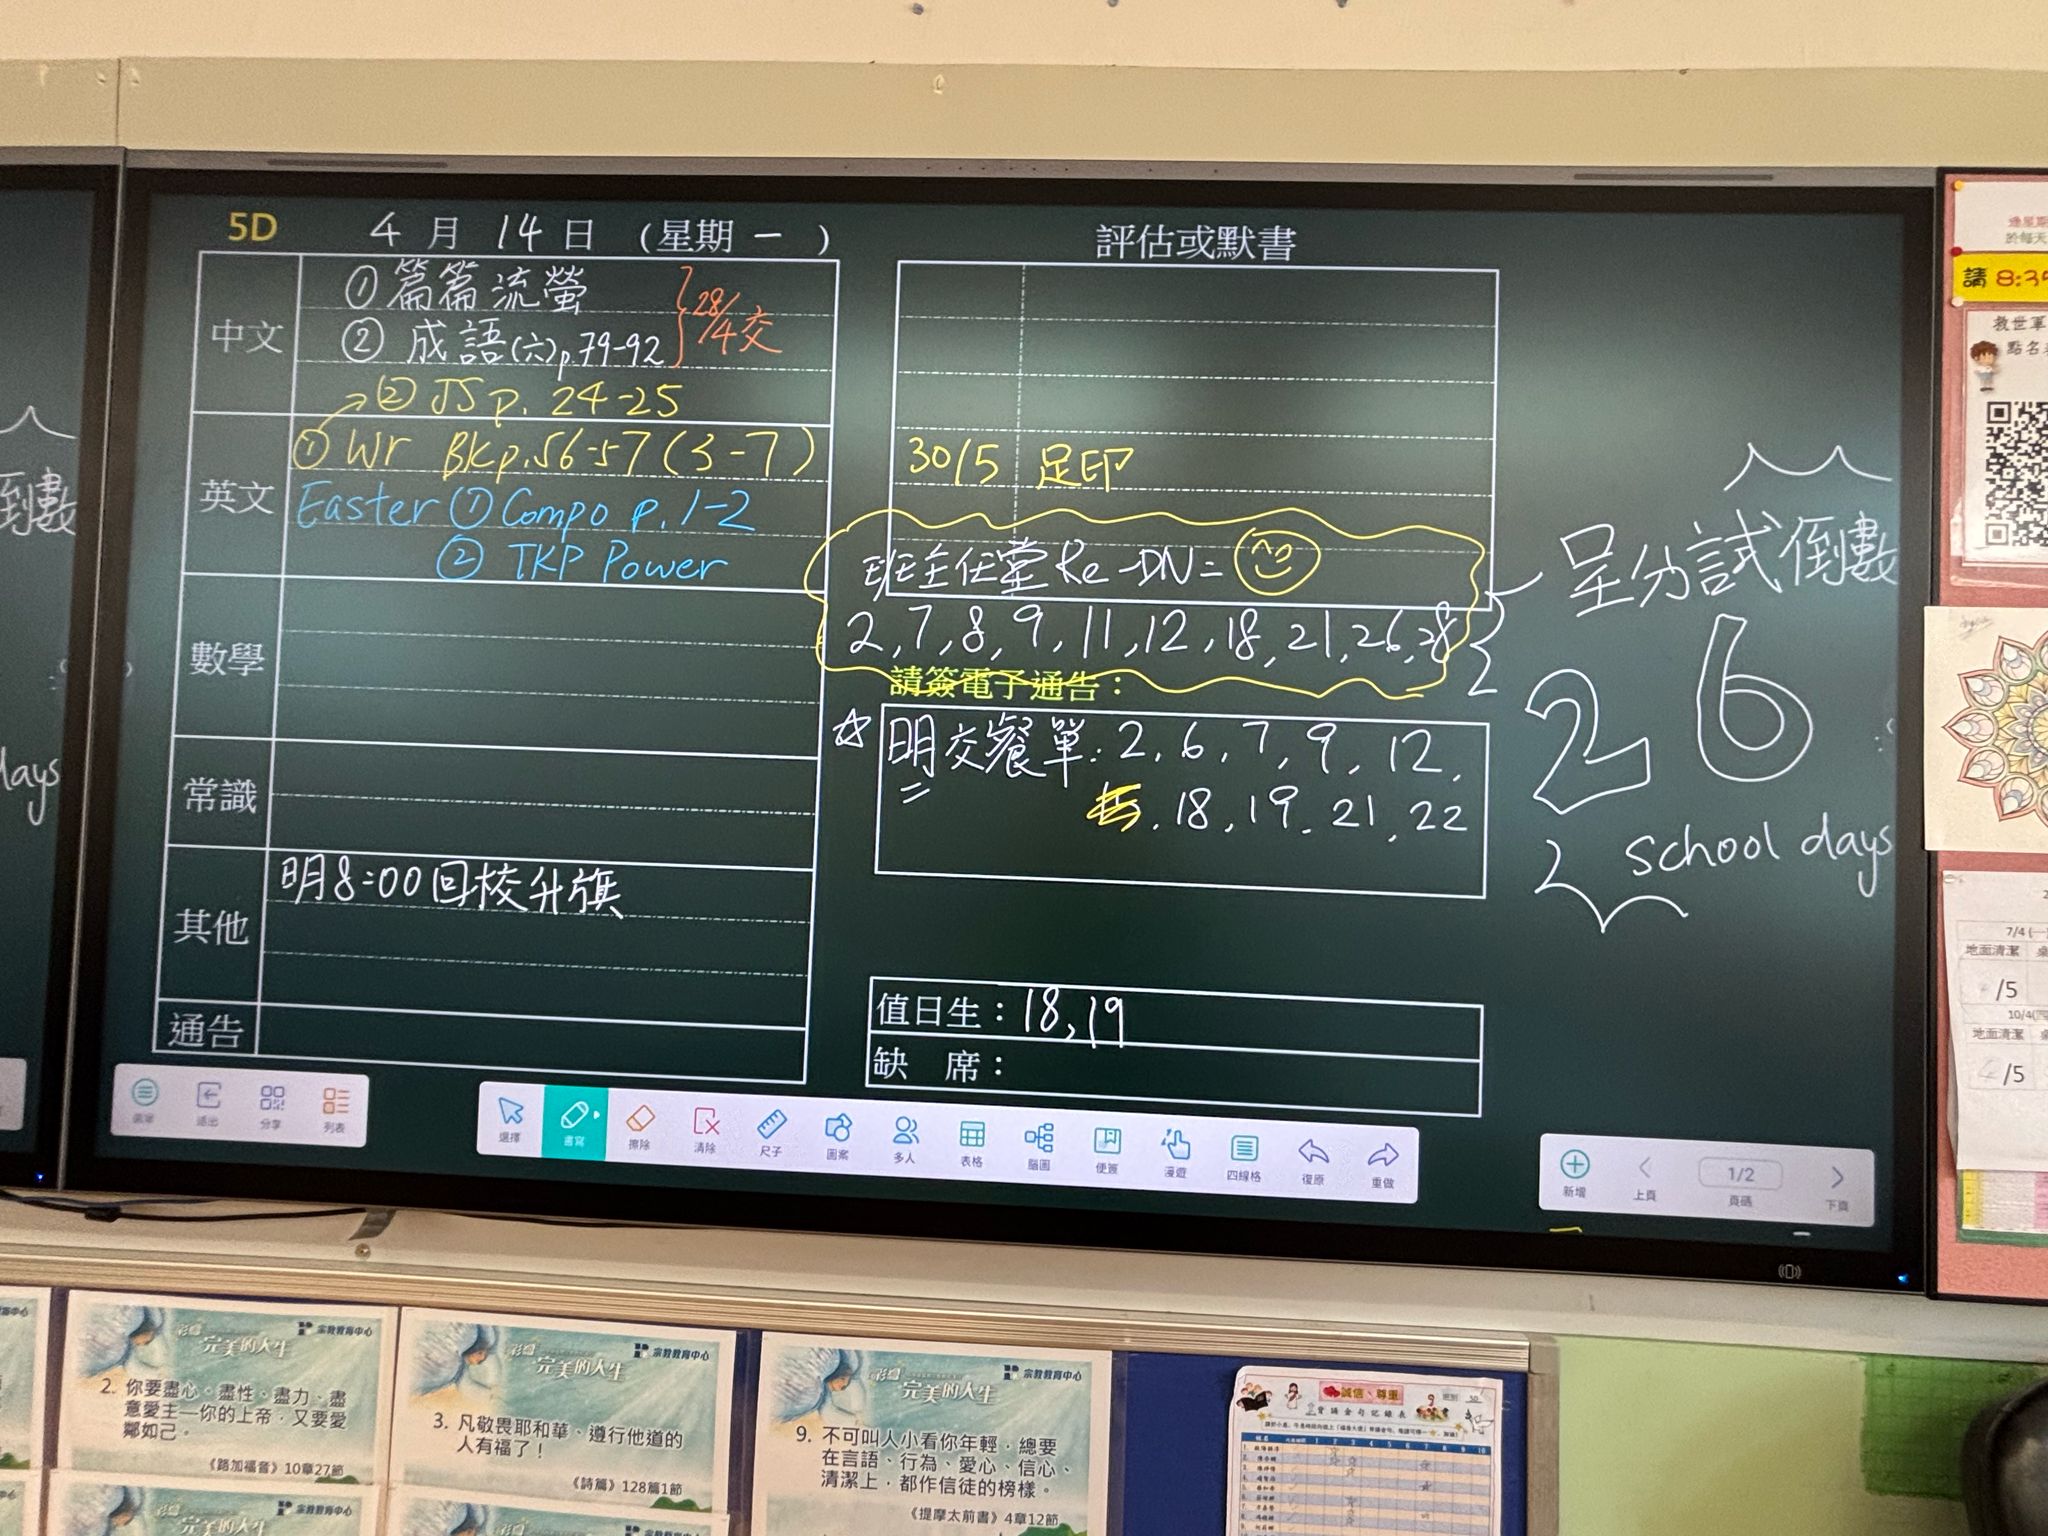 5D 4月14日(星期一)
中文
①篇篇流螢
②成語(六)p.79-92
28/4交
②JS p. 24-25
英文
①Wr Bk p.56-57(3-7)
Easter ①Compo p.1-2
②TKP Power
數學
常識
其他
明8:00回校升旗
通告
評估或默書
30/5 足印
班主任堂Re-DN=
2,7,8,9,11,12,18,21,26,28
請簽電子通告:
☆明交餐單:2,6,7,9,12,
,18,19,21,22
值日生:18,19
缺席:
呈分試倒數
26
school days
倒數
days
選單
退出
分享
列表
選擇
書寫
擦除
清除
尺子
圖案
多人
表格
腦圖
便簽
漫遊
四線格
復原
重做
新增
上頁
1/2
頁碼
下頁
請 8:35
救世軍
點名
7/4(一)
地面清潔
/5
10/4(四
地面清潔
/5
彩繪完美的人生
宗教教育中心
2. 你要盡心、盡性、盡力、盡
意愛主—你的上帝,又要愛
鄰如己。
《路加福音》10章27節
彩繪完美的人生
宗教教育中心
3. 凡敬畏耶和華、遵行他道的
人有福了!
《詩篇》128篇1節
彩繪完美的人生
宗教教育中心
9. 不可叫人小看你年輕,總要
在言語、行為、愛心、信心、
清潔上,都作信徒的榜樣。
《提摩太前書》4章12節
宗教教育中心
完美的人生
宗教教育中心
完美的人生
宗教教育中心
誠信、尊重
背誦金句記錄表